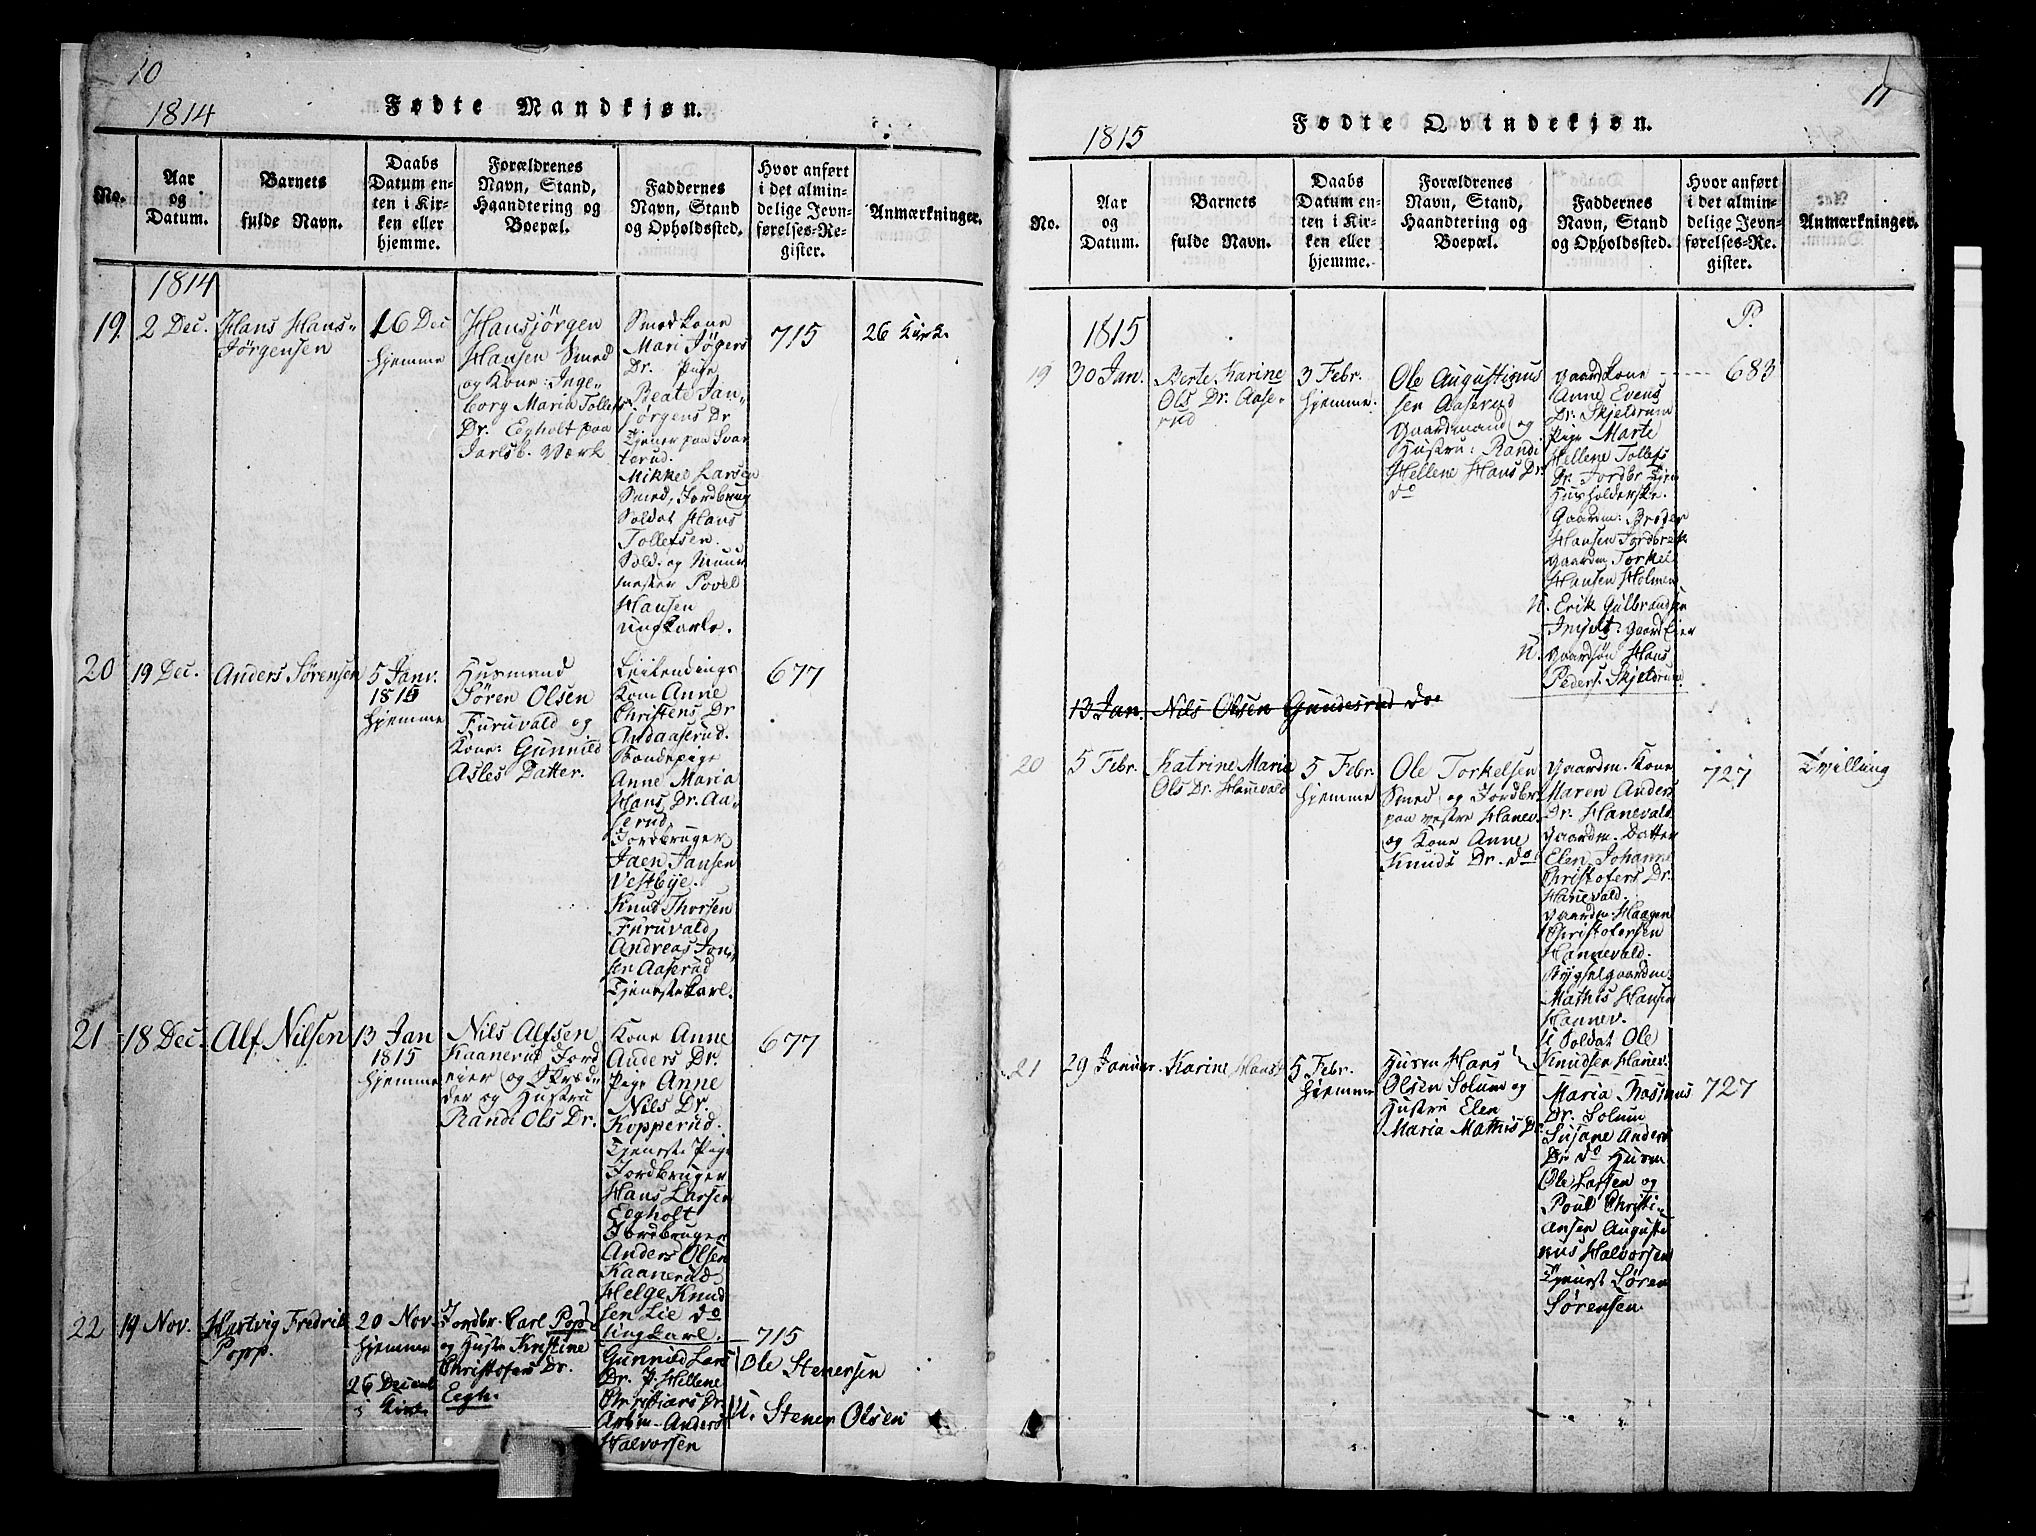 10
1814
Fødte Mandkjøn.
No.
Aar
og
Datum.
Barnets
fulde Navn.
Daabs
Datum en-
ten i Kir-
ken eller
hjemme.
Forældrenes
Navn, Stand,
Haandtering og
Boepæl.
Faddernes
Navn, Stand
og Opholdssted.
Hvor anført
i det almin-
delige Jevn-
førelses-Re-
gister.
Anmærkninger.
1814
19.
2 Dec.
Hans Hans-
Jørgensen
16 Dec
hjemme
Hansjörgen
Hansen Smed
og Kone: Inge-
borg Maria Tollefs
Dr. Eegholt paa
Jarlsb. Værk
Smed kone
Mari Jögers
Dr. Pige
Beate Jan-
jörgens Dr
Tjener paa Svar
terud.
Mikkel Larsen
Smed, Jordbrug
Soldat Hans
Tollefsen.
Sold. og Muur
mester Povel
Hansen
ungkarle.
715
26 Kirk.
20
19 Dec.
Anders Sørensen
5 Janv.
1815
hjemme
Husmand
Sören Olsen
Furuvald og
Kone: Gunnild
Asles Datter.
Leilendings
Kone Anne
Christens Dr
Andaaserud.
Bondepige
Anne Maria
Hans Dr. Aa-
serud,
Jordbruger
Jaen Jansen
Vestbye.
Knud Thorsen
Furuvald,
Andreas Jon-
sen Aaserud
Tjenestekarl.
677
21
18 Dec.
Alf Nilsen
13 Jan
1815
hjemme
Nils Alfsen
Kaanerud Jord
eier og Skræd
der og Hustru
Randi Ols Dr.
Kone Anne
Anders Dr.
Pige Anne
Nils Dr.
Kopperud.
Tjeneste Pige
Jordbruger
Hans Larsen
Eegholt
Jordbruger
Anders Olsen
Kaanerud,
Helge Knud
sen Lie do
ungkarl.
677
22
19 Nov.
Hartvig Fredrik
Popp.
20 Nov.
hjemme
26 Decemb
i Kirk.
Jordbr. Carl Pop
og Hustr Kristine
Christofers Dr.
Eegh.
Gunnild Lars
Dr. P. Hellene
Christians Dr.
Arbm. Anders
Halvorsen
715
Ole Stenersen
U. Stener Olsen
11
1815
Fødte Qvindekjøn.
No.
Aar
og
Datum.
Barnets
fulde Navn.
Daabs
Datum en-
ten i Kir-
ken eller
hjemme.
Forældrenes
Navn, Stand,
Haandtering og
Boepæl.
Faddernes
Navn, Stand
og Opholdssted.
Hvor anført
i det almin-
delige Jevn-
førelses-Re-
gister.
Anmærkninger.
1815
P.
19
30 Jan.
Berte Karine
Ols Dr. Aase-
rud
3 Febr.
hjemme.
Ole Augustinus
sen Aaserud
Gaardmand og
Hustru: Randi
Hellene Hans Dr.
do
Gaardkone
Anne Evens
Dr. Skjeldrum
Pige Marte
Hellene Tollefs
Dr. Jordbr
Husholderske.
Gaardm: Broder
Hansen Jordbrek
Gaardm Torkel
Hansen Holmen
U. Erik Gulbrandsen
Gaardeier
U. Gaardsøn Hans
Peders. Skjeldrum
683
13 Jan. Nils Olsen Gundesrud doe
20
5 Febr.
Katrine Marie
Ols Dr. Hanevald
5 Febr.
hjemme
Ole Torkelsen
Smed og Jordbr.
paa vestre Hanev.
og Kone Anne
Knuds Dr. do
Gaardm. Kone
Maren Anders
Dr. Hanevald
Gaardm. Datter
Elen Johanne
Christofers Dr.
Hanevald.
Gaardm. Haagen
Christofersen
Hannevald.
Bygselgaardm.
Mathis Hansen
Hannev.
U Soldat Ole
Knudsen Hanev.
727
Tvilling
21
29 Januar.
Karine Hans
5 Febr.
hjemme
Husm Hans
Olsen Solum og
Hustru Elen
Maria Mathis Dr.
Maria Rasmus
Dr. Solum
Susane Anders
Dr do Husm
Ole Lassen og
Poul Christi-
ansen Augusti
nus Halvorsen
Tjenest Sören
Sörensen
727